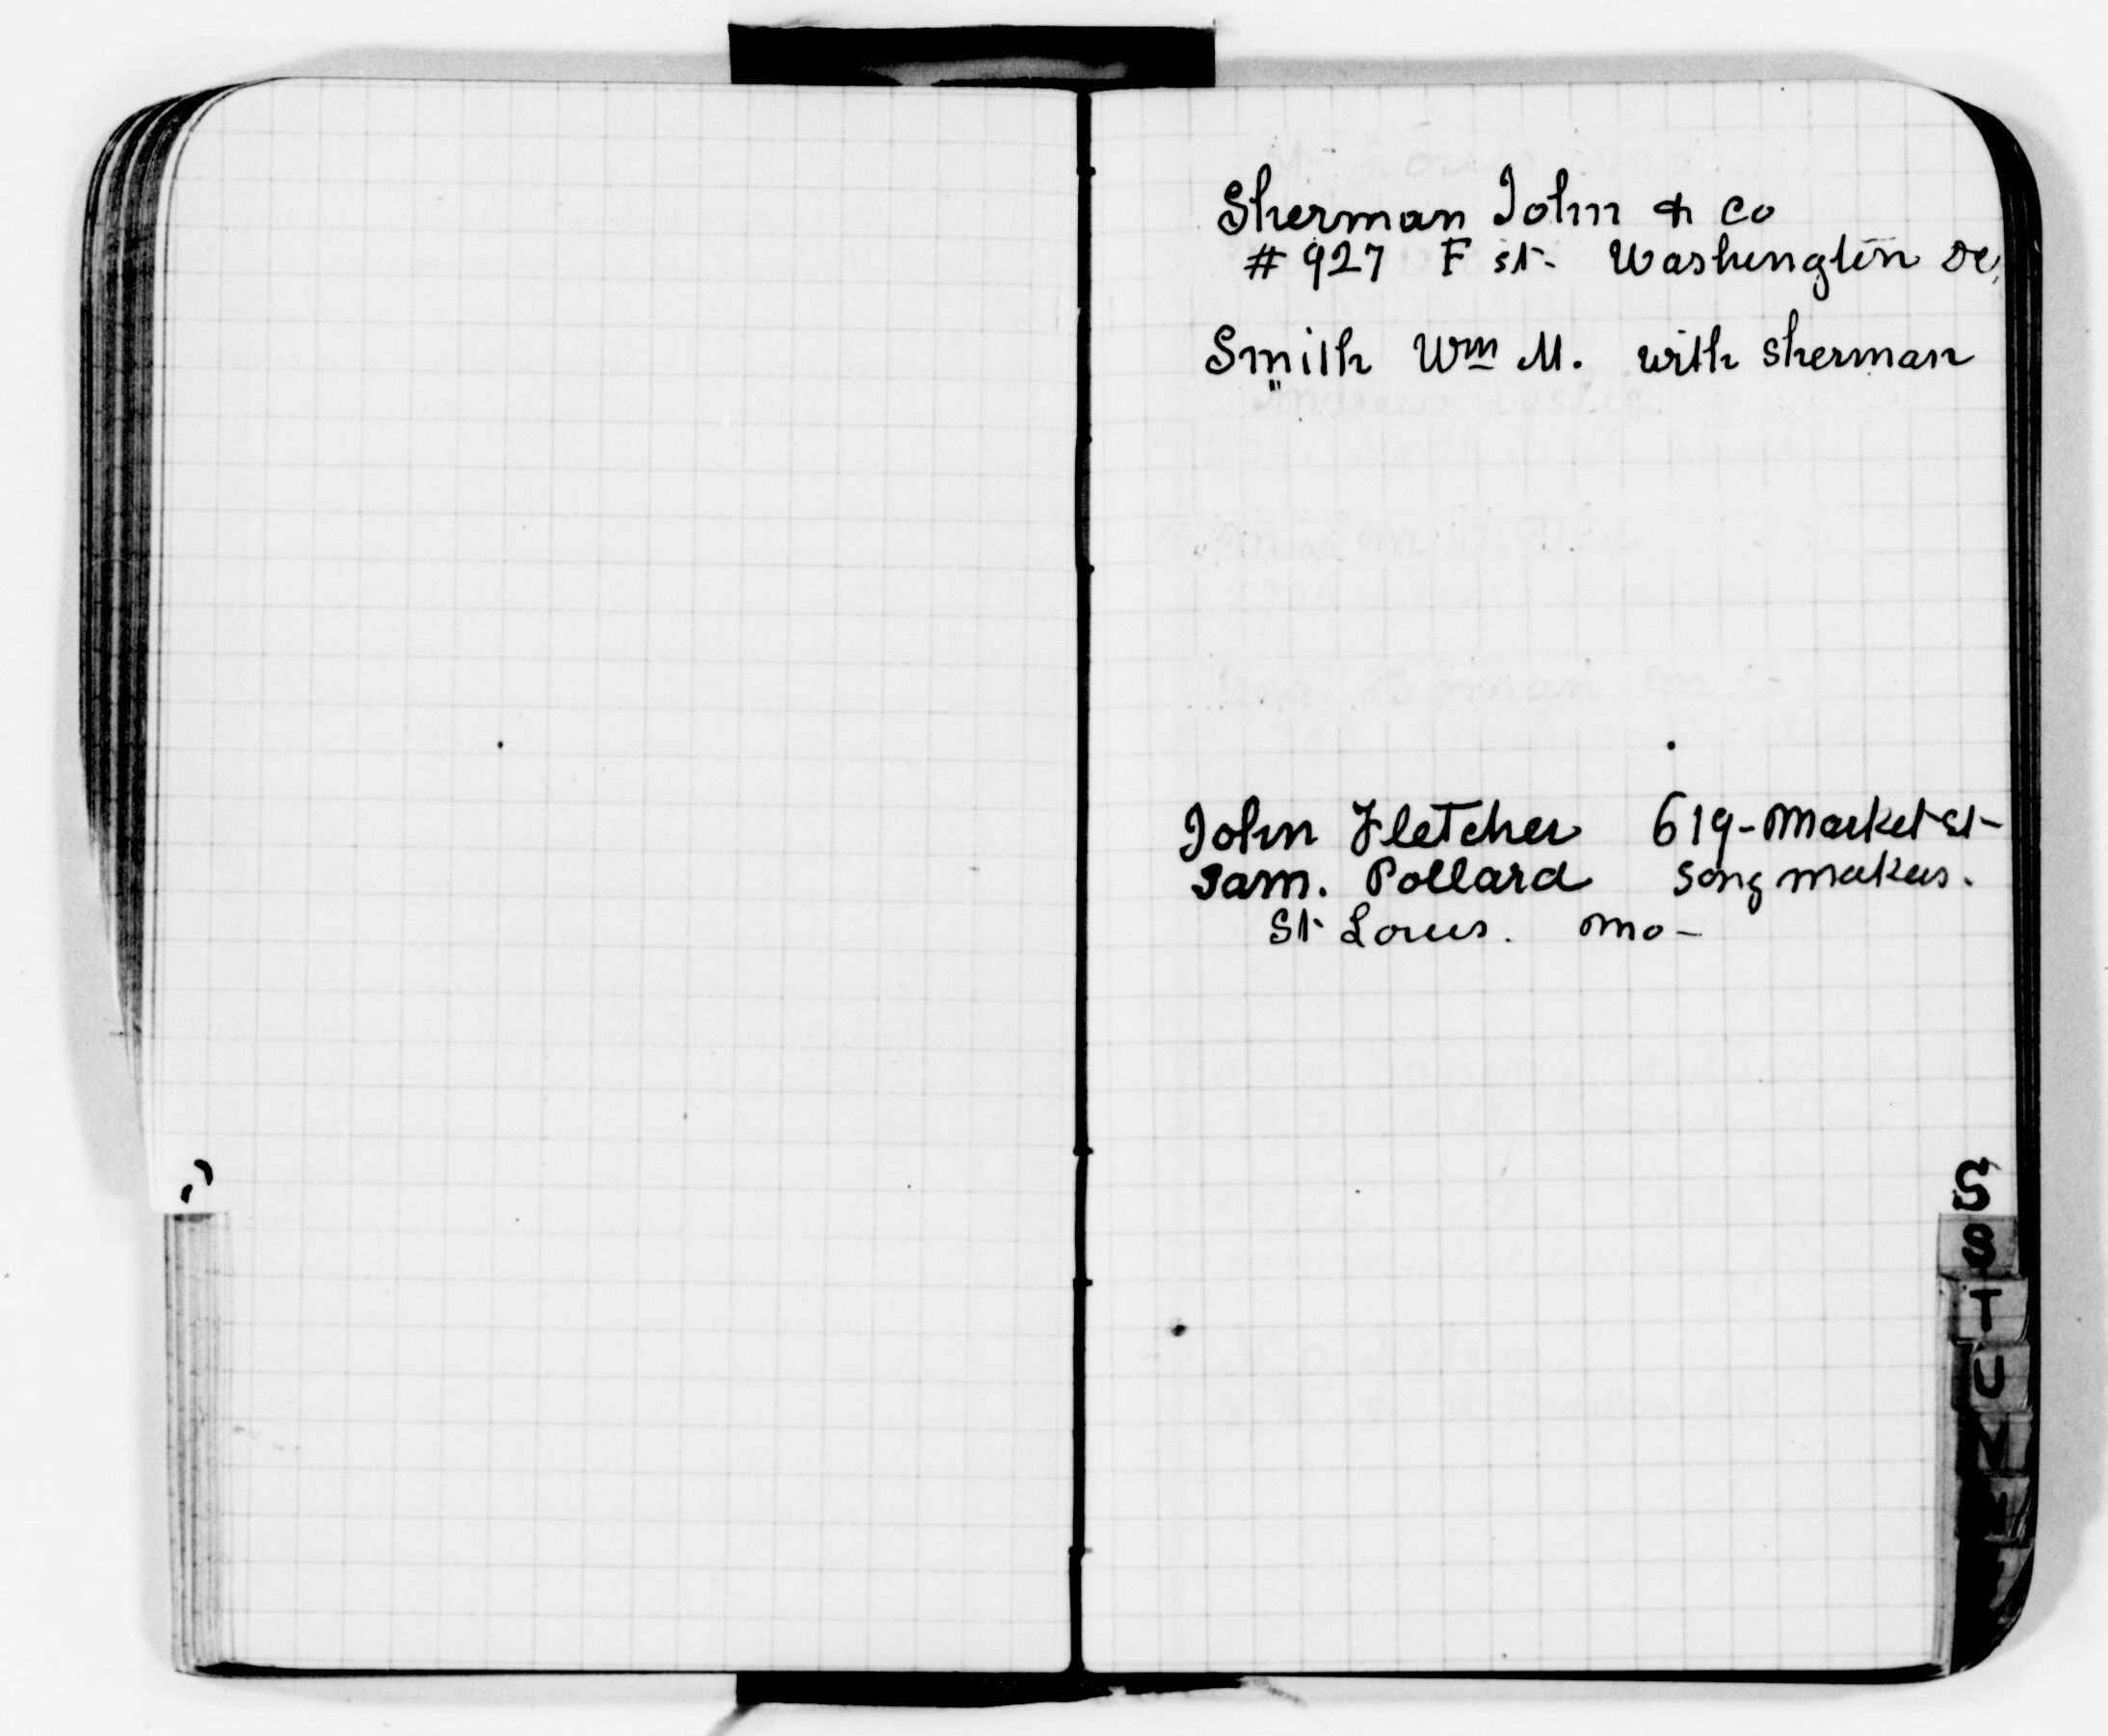 Sherman John & Co
# 927 F st. Washington DC,
Smith Wm M. with Sherman
"
John Fletcher 619-Market St-
Sam. Pollard Song makers.
St Louis. Mo-
S
S
T
U
V